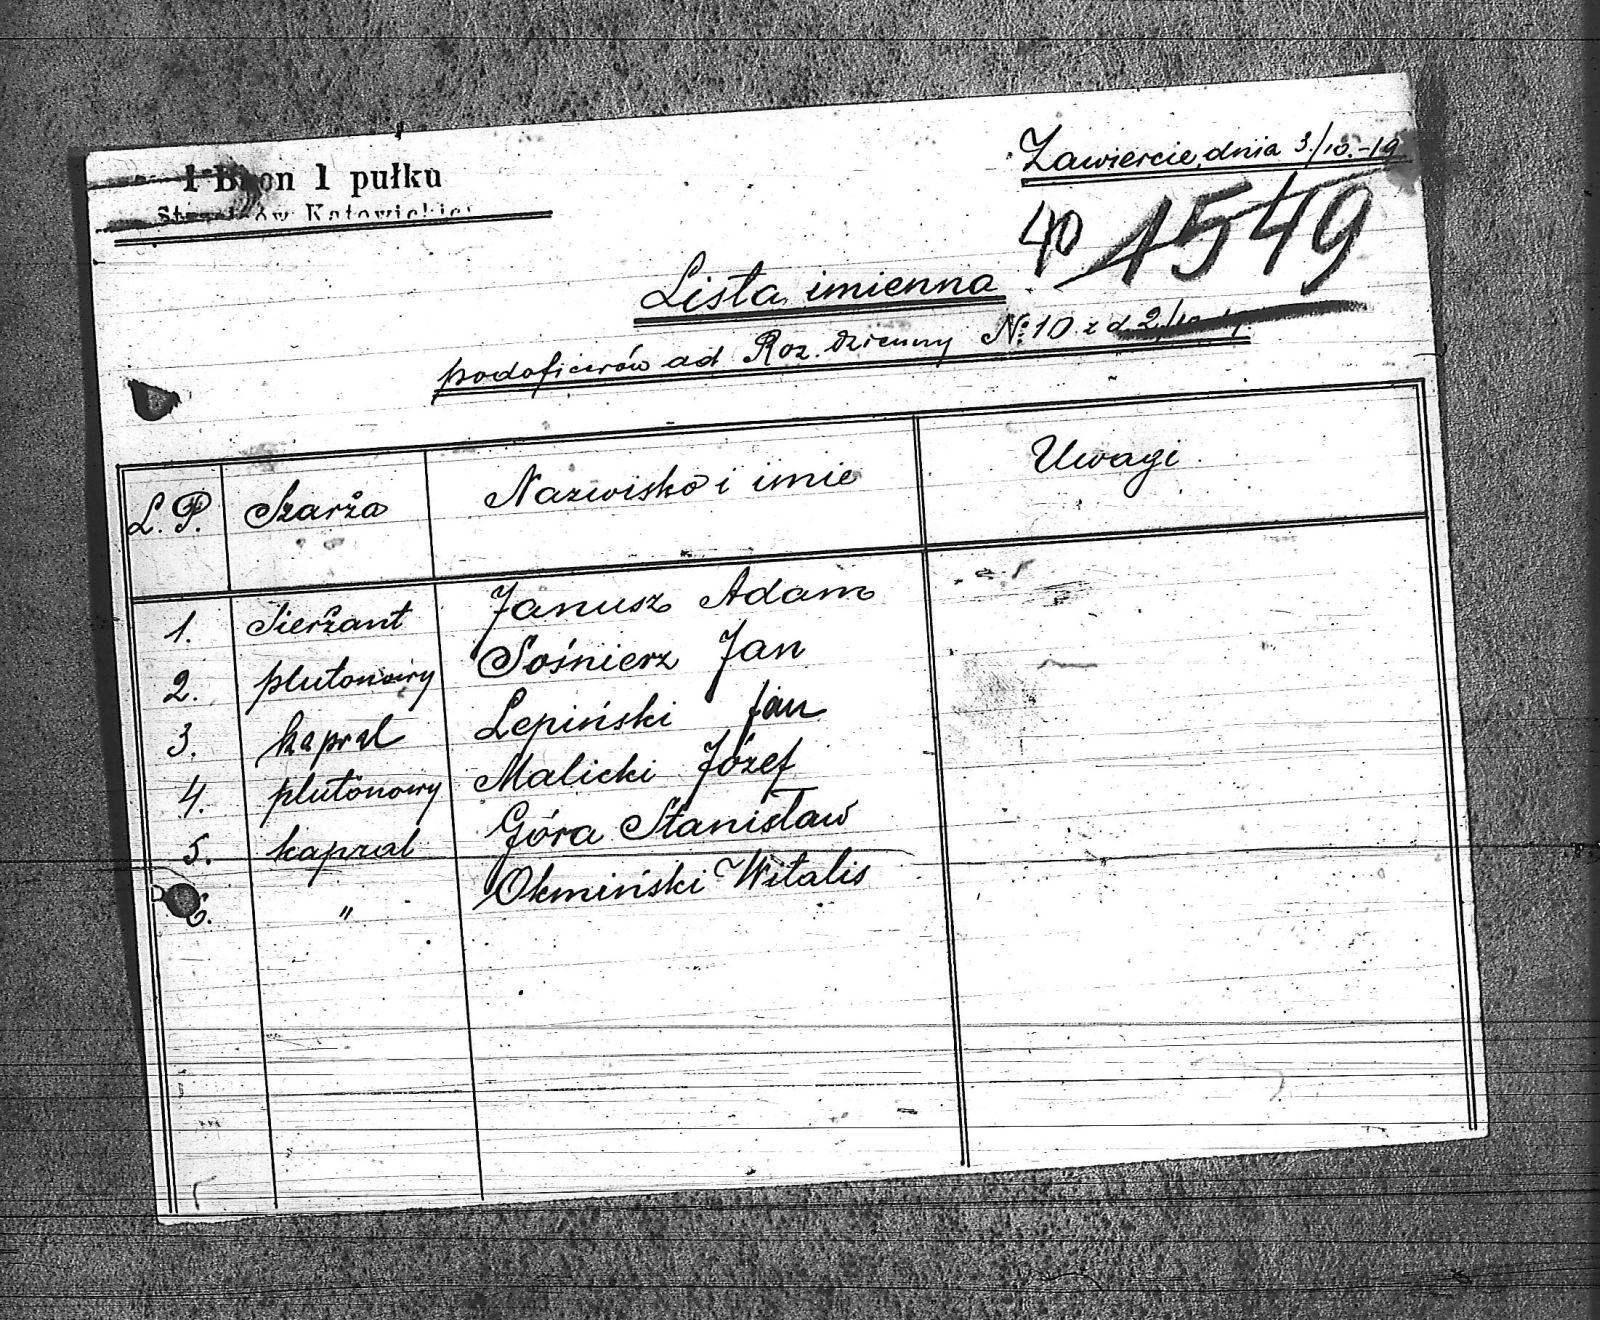 1 Baon 1 pułku
Strzelców Katowickich
Zawiercie, dnia 3/10.-19
40 1549
Lista imienna
podoficerów ad Roz. dzienny № 10 z d 2/10
L.P. Szarża Nazwisko i imie Uwagi
1. Sierżant Janusz Adam
2. plutonowy Sośnierz Jan
3. kapral Lepiński Jan
4. plutonowy Malicki Józef
5. kapral Góra Stanisław
6. " Okmiński Witalis